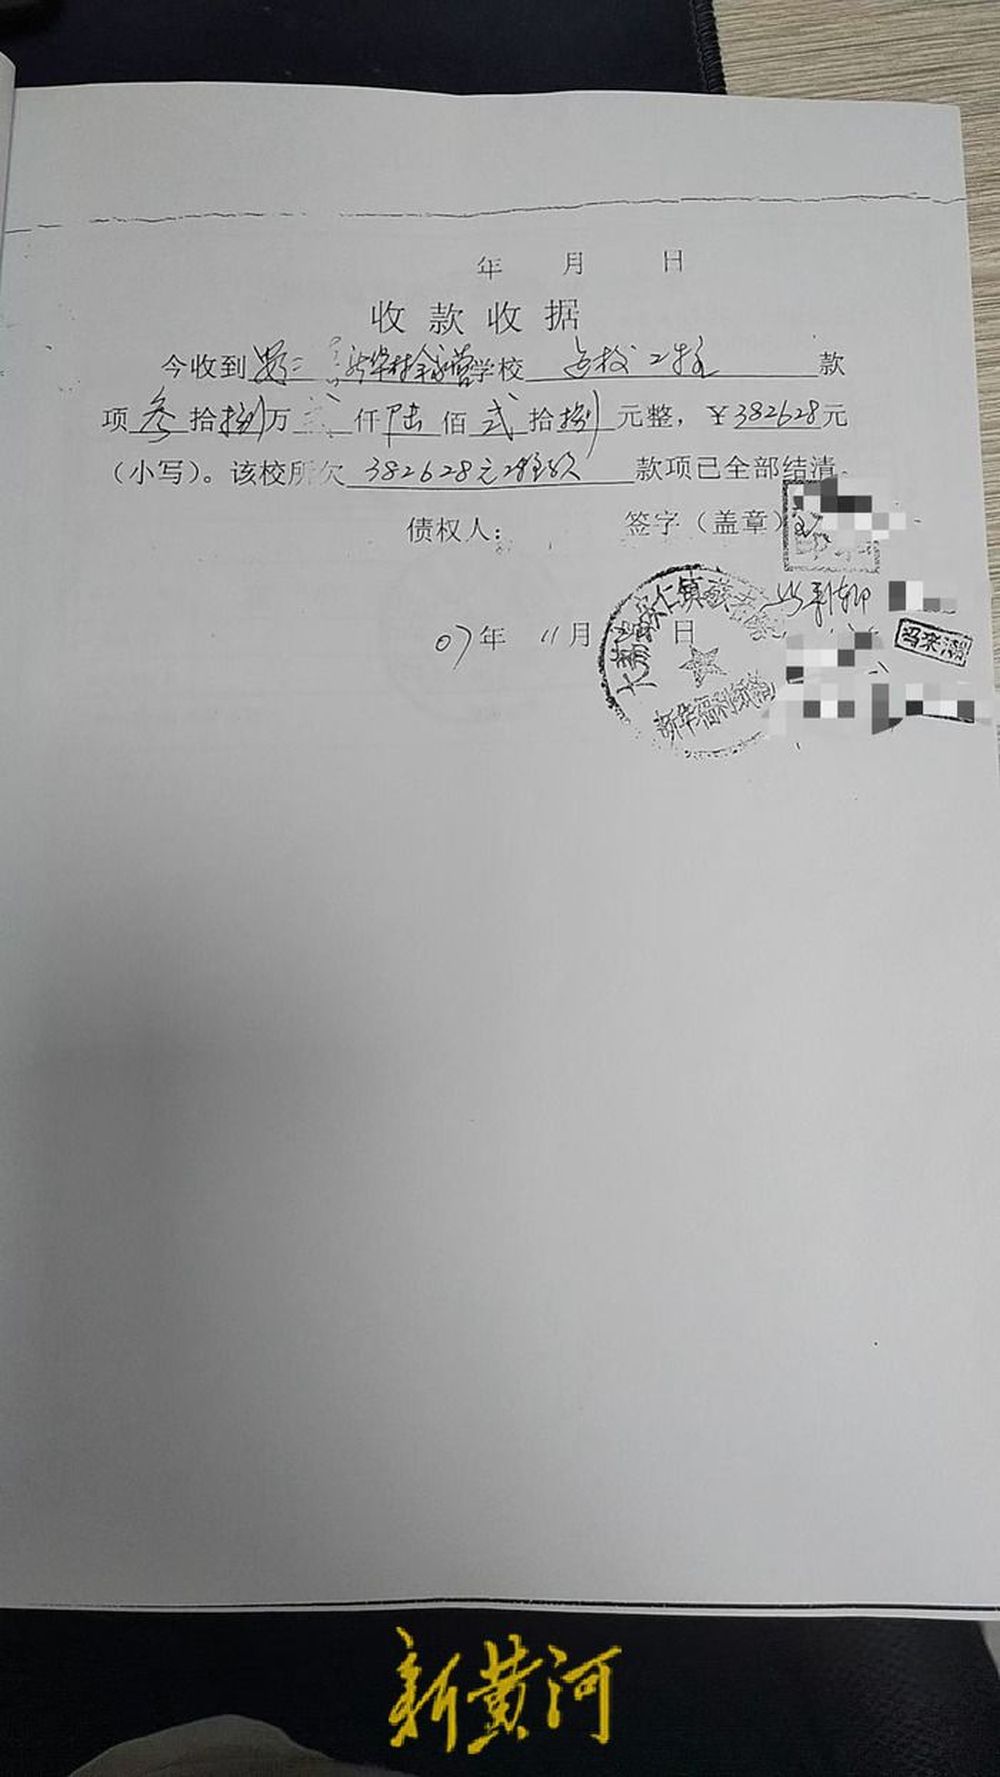 年 月 日
收款收据
今收到 新华村余家营学校 建校工程 款
项叁拾捌万贰仟陆佰贰拾捌元整，¥382628元
（小写）。该校所欠 382628元 款项已全部结清。
债权人： 签字（盖章）
07年 11月 日
冯来潮
新华福利
新黄河